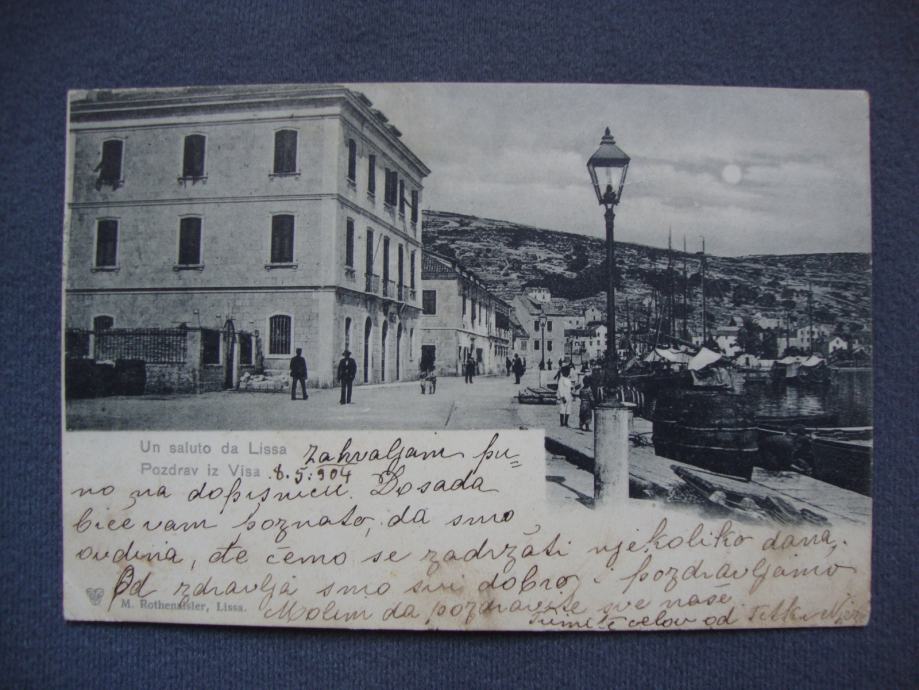 Un saluto da Lissa
Pozdrav iz Visa 8.5.904 Zahvaljam pu-
no na dopisnicu. Dosada
biće vam poznato, da smo
ovdina, de ćemo se zadržati njekoliko dana.
Od zdravlja smo svi dobro i pozdravljamo
M. Rothenaisler, Lissa.
Molim da pozdravite sve naše
celov od Tetki